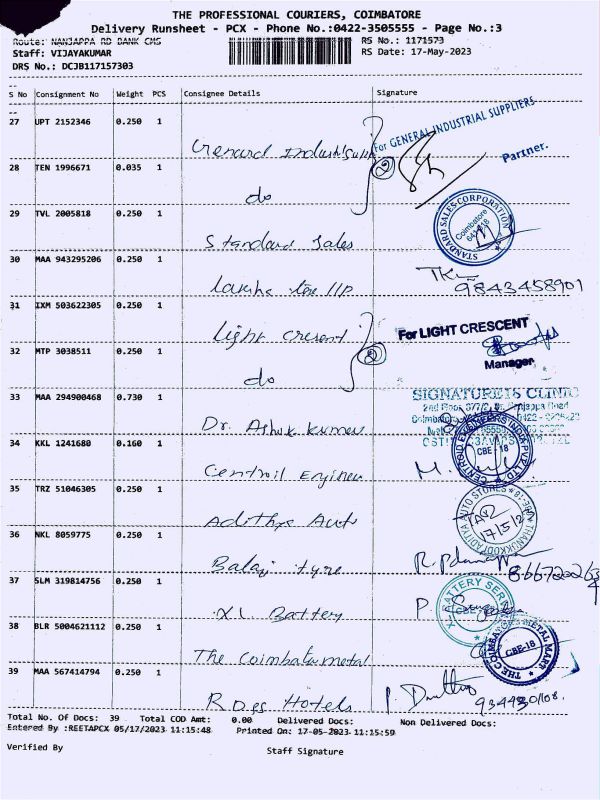 THE PROFESSIONAL COURIERS, COIMBATORE
Delivery Runsheet - PCX - Phone No.:0422-3505555 - Page No.:3
Route: NANJAPPA RD BANK CMS RS No.: 1171573
Staff: VIJAYAKUMAR RS Date: 17-May-2023
DRS No.: DCJB117157303
S No Consignment No Weight PCS Consignee Details Signature
27 UPT 2152346 0.250 1
For GENERAL INDUSTRIAL SUPPLIERS
Partner.
28 TEN 1996671 0.035 1
do
2
29 TVL 2005818 0.250 1
Standard Sales
STANDARD SALES CORPORATION
Coimbatore
30 MAA 943295206 0.250 1
9843458901
31 IXM 503622305 0.250 1
light cresent
For LIGHT CRESCENT
Manager
32 MTP 3038511 0.250 1
do
2
33 MAA 294900468 0.730 1
Dr. Ashok Kumar
34 KKL 1241680 0.160 1
CBE-18
35 TRZ 51046305 0.250 1
Adithya Auto
ADITYA AUTO STORES
17/5/2
36 NKL 8059775 0.250 1
Balaji tyre
37 SLM 319814756 0.250 1
XL Battery
38 BLR 5004621112 0.250 1
The Coimbatore metal
THE COIMBATORE METAL MART
CBE-18
39 MAA 567414794 0.250 1
Hotels
Total No. Of Docs: 39 Total COD Amt: 0.00 Delivered Docs: Non Delivered Docs:
Entered By :REETAPCX 05/17/2023 11:15:48 Printed On: 17-05-2023 11:15:59
Verified By Staff Signature